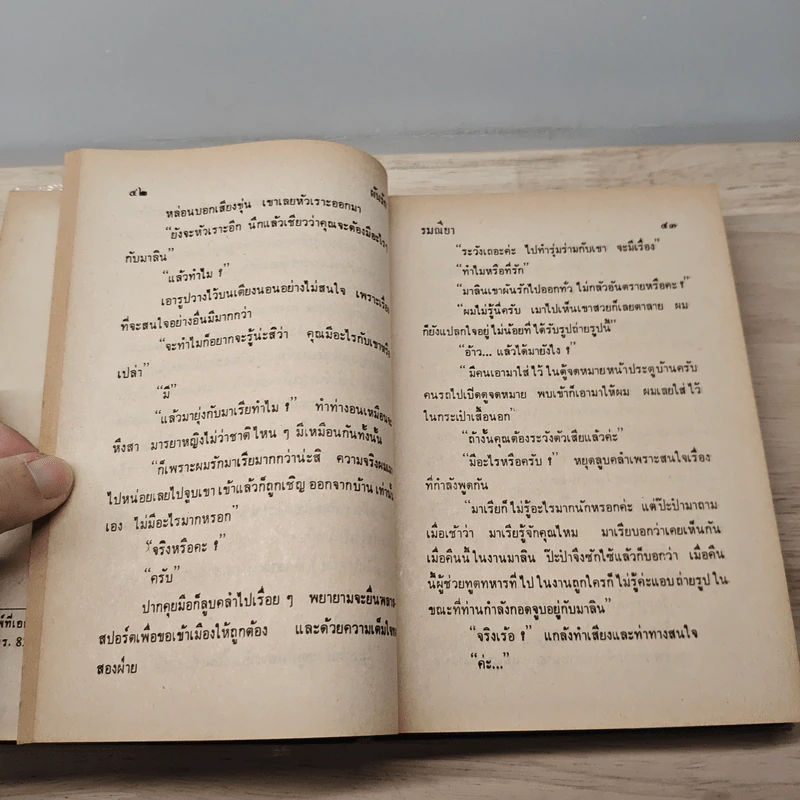 ๔๒
หล่อนบอกเสียงขุ่น เขาเลยหัวเราะออกมา
“ยังจะหัวเราะอีก นึกแล้วเชียวว่าคุณจะต้องมีอะไรๆ
กับมาลิน”
“แล้วทำไม ?”
เอารูปวางไว้บนเตียงนอนอย่างไม่สนใจ เพราะเรื่อง
ที่จะสนใจอย่างอื่นมีมากกว่า
“จะทำไมก็อยากจะรู้น่ะสิว่า คุณมีอะไรกับเขาหรือ
เปล่า”
“มี”
“แล้วมายุ่งกับมาเรียทำไม ?” ทำท่างอนเหมือนจะ
หึงสา มารยาหญิงไม่ว่าชาติไหน ๆ มีเหมือนกันทั้งนั้น
“ก็เพราะผมรักมาเรียมากกว่าน่ะสิ ความจริงผมเมา
ไปหน่อยเลยไปจูบเขา เข้าแล้วก็ถูกเชิญ ออกจากบ้าน เท่านั้น
เอง ไม่มีอะไรมากหรอก”
“จริงหรือคะ ?”
“ครับ”
ปากคุยมือก็ลูบคลำไปเรื่อย ๆ พยายามจะยื่นพาส
สปอร์ตเพื่อขอเข้าเมืองให้ถูกต้อง และด้วยความเต็มใจของ
สองฝ่าย
รมณียา ๔๓
“ระวังเถอะค่ะ ไปทำรุ่มร่ามกับเขา จะมีเรื่อง”
“ทำไมหรือที่รัก”
“มาลินเขาผันรักไปออกทั่ว ไม่กลัวอันตรายหรือคะ ?”
“ผมไม่รู้นี่ครับ เมาไปเห็นเขาสวยก็เลยตาลาย ผม
ก็ยังแปลกใจอยู่ไม่น้อยที่ ได้รับรูปถ่ายรูปนี้”
“อ้าว... แล้วได้มายังไง ?”
“มีคนเอามาใส่ไว้ ในตู้จดหมายหน้าประตูบ้านครับ
คนรถไปเปิดดูจดหมาย พบเข้าก็เอามาให้ผม ผมเลยใส่ไว้
ในกระเป๋าเสื้อนอก”
“ถ้างั้นคุณต้องระวังตัวเสียแล้วค่ะ”
“มีอะไรหรือครับ ?” หยุดลูบคลำเพราะสนใจเรื่อง
ที่กำลังพูดกัน
“มาเรียก็ ไม่รู้อะไรมากนักหรอกค่ะ แต่ป๊ะป๋ามาถาม
เมื่อเช้าว่า มาเรียรู้จักคุณไหม มาเรียบอกว่าเคยเห็นกัน
เมื่อคืนนี้ ในงานมาลิน ป๊ะป๋าจึงซักไซ้แล้วก็บอกว่า เมื่อคืน
นี้ผู้ช่วยทูตทหารที่ ไป ในงานถูกใครก็ ไม่รู้ค่ะแอบถ่ายรูป ใน
ขณะที่ท่านกำลังกอดจูบอยู่กับมาลิน”
“จริงเร้อ ?” แกล้งทำเสียงและท่าทางสนใจ
“ค่ะ...”